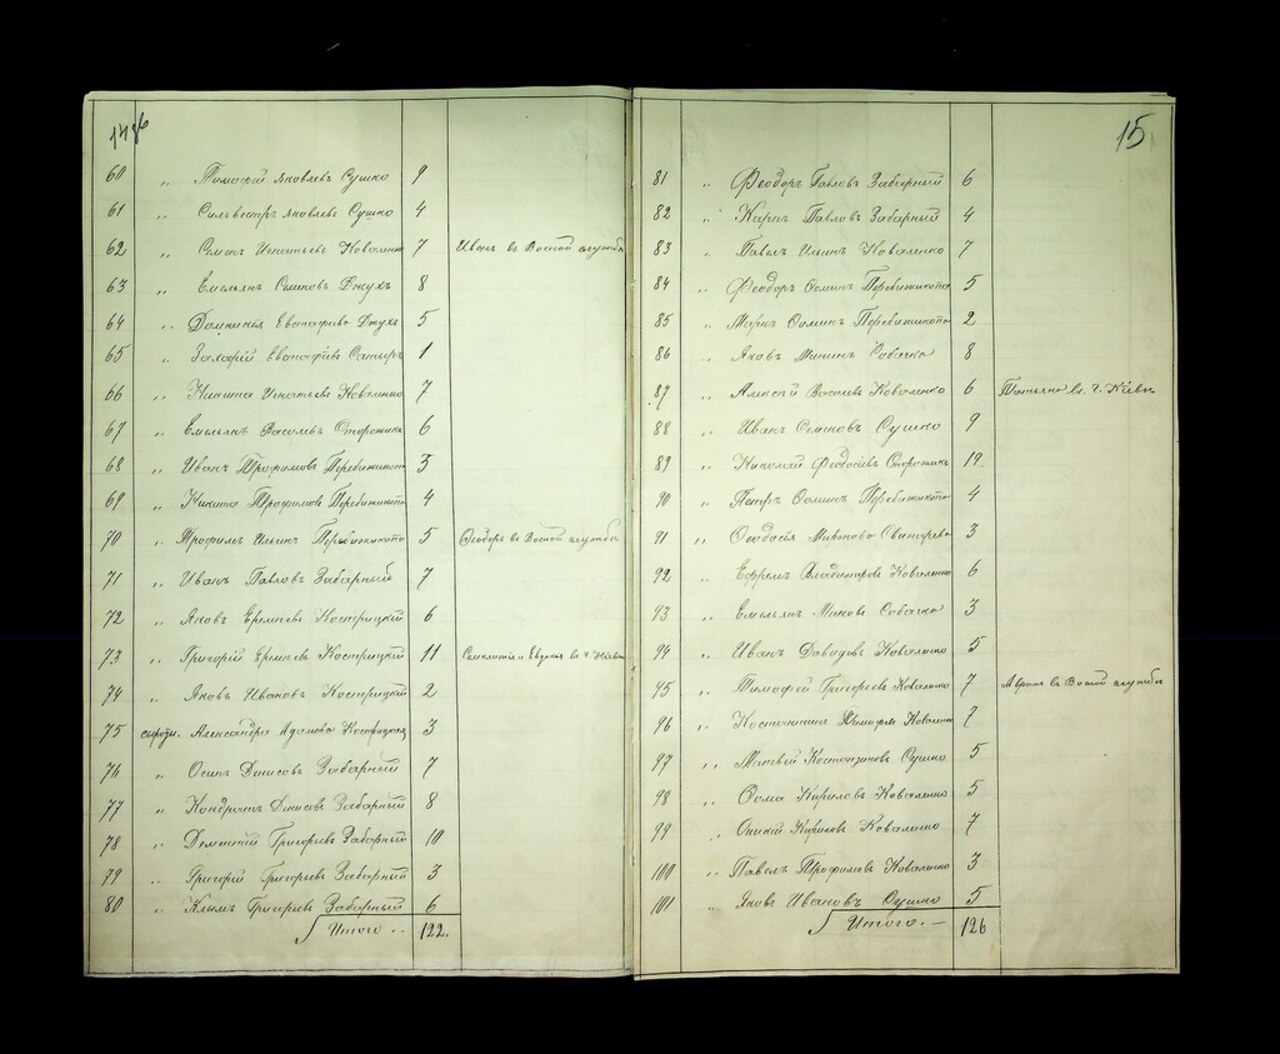 15
60 „ Тимофей Яковлевъ Сушко 9
61 „ Сильвестръ Яковлевъ Сушко 4
62 „ Семенъ Игнатьевъ Коваленко 7 Иванъ въ Воен̃ой службѣ
63 „ Емельянъ Семеновъ Джухъ 8
64 „ Домникія Евстафiева Джухъ 5
65 „ Захарій Евстафіевъ Сатыръ 1
66 „ Никита Игнатьевъ Коваленко 7
67 „ Емельянъ Васильевъ Сторожикъ 6
68 „ Иванъ Трофимовъ 3
69 „ Никита Трофимовъ 4
70 „ Трофимъ Ильинъ 5 Ѳеодоръ въ службѣ
71 „ Иванъ Павловъ Забарный 7
72 „ Яковъ Еремѣевъ Кострицкій 6
73 „ Григорій Еремѣевъ Кострицкій 11 и Евдокія въ г. Кіевѣ
74 „ Яковъ Ивановъ Кострицкій 2
75 Александра Адамова Кострицкая 3
76 „ Осипъ Денисовъ Забарный 7
77 „ Кондратъ Денисовъ Забарный 8
78 „ Дементій Григорьевъ Забарный 10
79 „ Григорій Григорьевъ Забарный 3
80 „ Климъ Григорьевъ Забарный 6
Итого .. 122.
81 „ Феодоръ Павловъ Забарный 6
82 „ Карпъ Павловъ Забарный 4
83 „ Павелъ Ильинъ Коваленко 7
84 „ Феодоръ Ѳоминъ 5
85 „ Маркъ Ѳоминъ 2
86 „ Яковъ Мининъ Собачко 8
87 „ Алексѣй Васильевъ Коваленко 6 Татьяна въ г. Кіевѣ
88 „ Иванъ Семеновъ Сушко 9
89 „ Николай Феодосіевъ Сторожикъ 19.
90 „ Петръ Ѳоминъ 4
91 „ Ѳеодосія Миронова 3
92 „ Ефремъ Владимировъ Коваленко 6
93 „ Емельянъ Собачко 3
94 „ Иванъ Давидовъ Коваленко 5
95 „ Тимофей Григорьевъ Коваленко 7 въ службѣ
96 „ Константинъ Коваленко 7
97 „ Матвѣй Константиновъ Сушко 5
98 „ Ѳома Кириловъ Коваленко 5
99 „ Кириловъ Коваленко 7
100 „ Павелъ Трофимовъ Коваленко 3
101 „ Яковъ Ивановъ Сушко 5
Итого. — 126